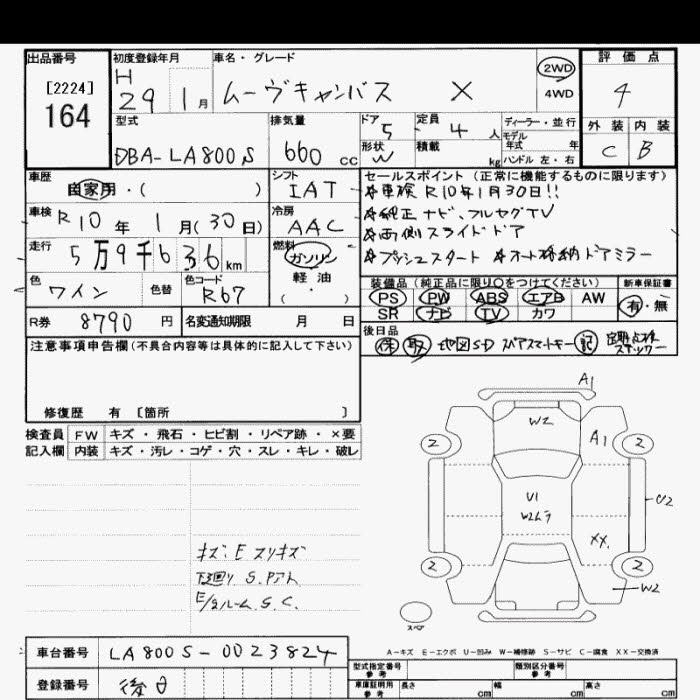 出品番号
[2224]
164
初度登録年月
H 29 1月
車名・グレード
ムーヴキャンバス X
2WD
4WD
評価点
4
外装 内装
C B
型式
DBA-LA800S
排気量
660 cc
ドア 5
形状 W
定員 4 人
積載 kg
ディーラー・並行
モデル
年式 年
ハンドル 左・右
車歴
自家用・( )
シフト
IAT
セールスポイント (正常に機能するものに限ります)
☆車検 R10年1月30日!!
☆純正ナビ、フルセグTV
☆両側スライドドア
☆プッシュスタート ☆オート格納ドアミラー
車検 R10年 1月(30日)
冷房
AAC
走行
5万9千636km
燃料
ガソリン
軽油
( ・ )
色
ワイン
色替
色コード
R67
装備品(純正品に限り○をつけてください)
PS PW ABS エアB AW
SR ナビ TV カワ
新車保証書
有・無
R券 8790円
名変通知期限 月 日
後日品
保 取 地図SD スペアスマートキー 記 定期点検
ステッカー
注意事項申告欄(不具合内容等は具体的に記入して下さい)
修復歴 有 [箇所 ]
検査員 FW キズ・飛石・ヒビ割・リペア跡・×要
記入欄 内装 キズ・汚レ・コゲ・穴・スレ・キレ・破レ
A1
W2
2
A1
2
U1
W2ムラ
U2
XX.
2
2
W2
キズ・E スリキズ
下廻り S.Pアト
E/gルーム.S.C.
スペア
A-キズ E-エクボ U-凹み W-補修跡 S-サビ C-腐食 XX-交換済
車台番号 LA800S-0023824
型式指定番号
参考
類別区分番号
参考
登録番号 後日
車庫証明用
参考
長さ cm 幅 cm 高さ cm